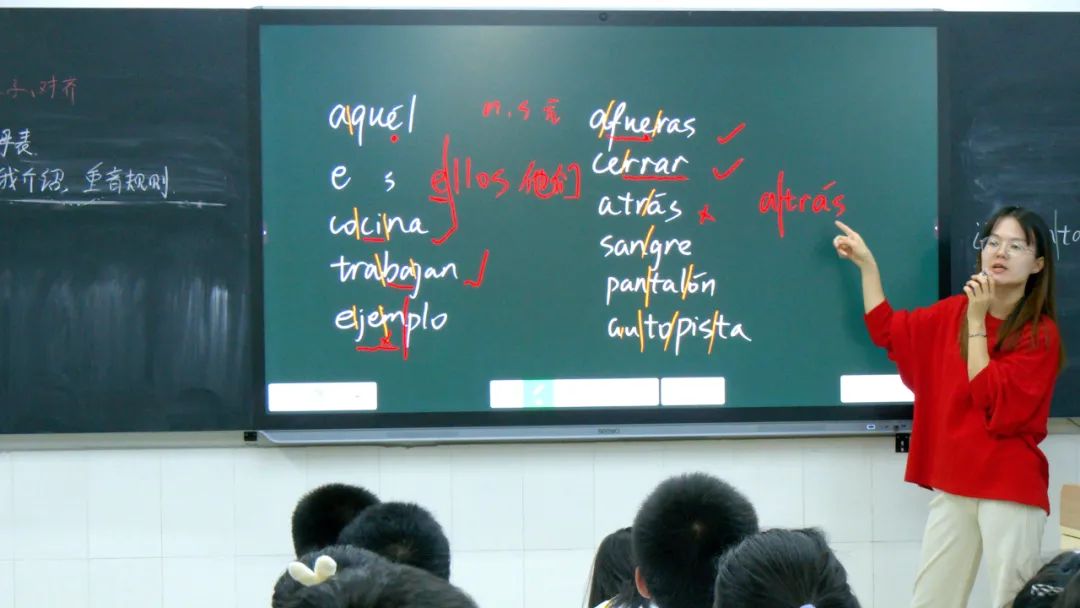 对齐
母表
我介绍, 重音规则.
aquél
e s
cocina
trabajan
ejemplo
n, s 完
ellos 他们
afueras
cerrar
atrás
sangre
pantalón
autopista
atrás
seewo